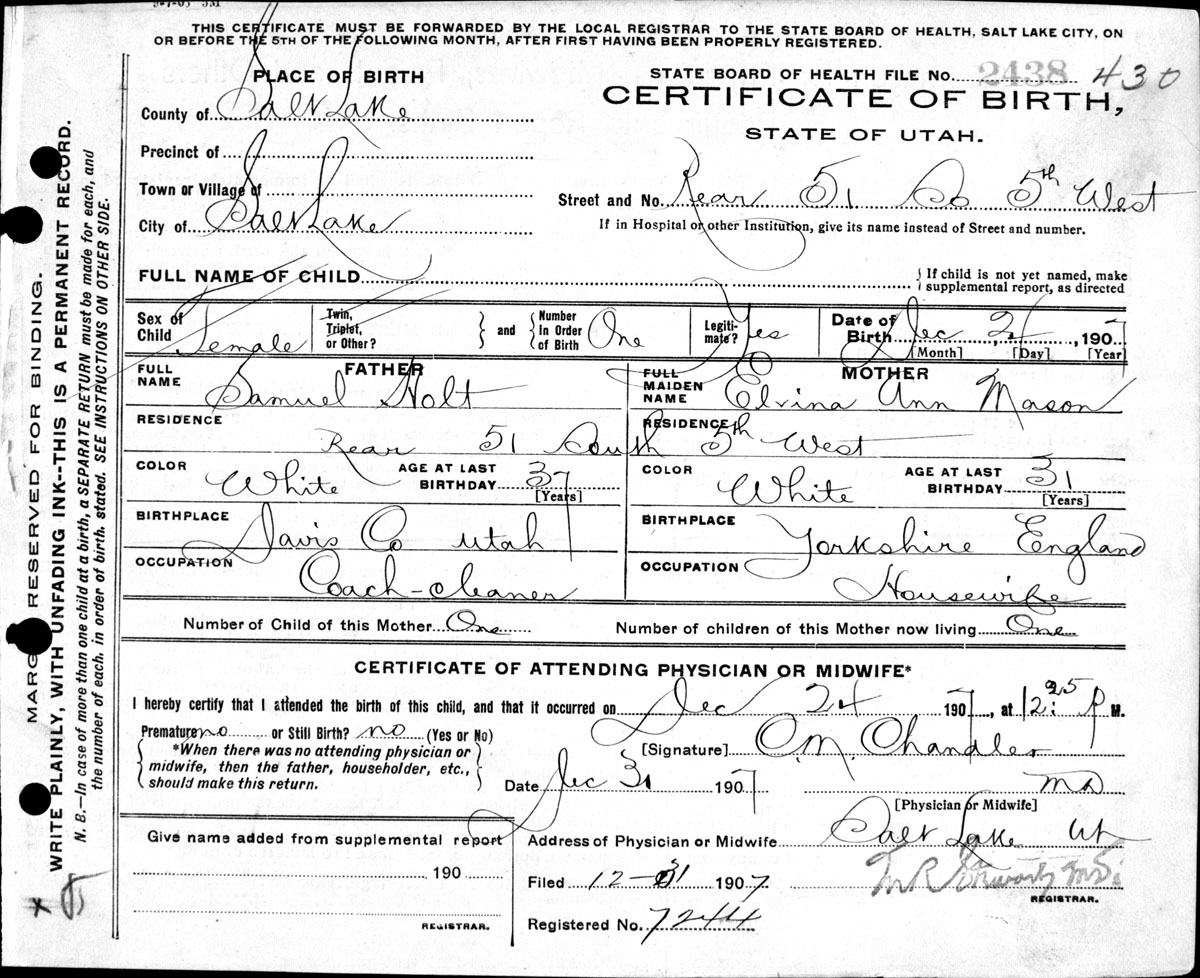 THIS CERTIFICATE MUST BE FORWARDED BY THE LOCAL REGISTRAR TO THE STATE BOARD OF HEALTH, SALT LAKE CITY, ON
OR BEFORE THE 5TH OF THE FOLLOWING MONTH, AFTER FIRST HAVING BEEN PROPERLY REGISTERED.
PLACE OF BIRTH
County of Salt Lake
Precinct of
Town or Village of
City of Salt Lake
STATE BOARD OF HEALTH FILE NO. 2438 430
CERTIFICATE OF BIRTH,
STATE OF UTAH.
Street and No. Rear 51 So 5th West
If in Hospital or other Institution, give its name instead of Street and number.
FULL NAME OF CHILD
{ If child is not yet named, make
supplemental report, as directed
Sex of Child Female
Twin, Triplet, or Other?
} and { Number In Order of Birth One
Legiti-mate? Yes
Date of Birth Dec 24, 1907
[Month] [Day] [Year]
FATHER
FULL NAME Samuel Holt
MOTHER
FULL MAIDEN NAME Elvina Ann Mason
RESIDENCE
RESIDENCE
Rear 51 South 5th West
COLOR White
AGE AT LAST BIRTHDAY 37
[Years]
COLOR White
AGE AT LAST BIRTHDAY 31
[Years]
BIRTHPLACE Davis Co Utah
BIRTHPLACE Yorkshire England
OCCUPATION Coach-cleaner
OCCUPATION Housewife
Number of Child of this Mother One
Number of children of this Mother now living One
CERTIFICATE OF ATTENDING PHYSICIAN OR MIDWIFE*
I hereby certify that I attended the birth of this child, and that it occurred on Dec 24 1907, at 12:25 P M.
Premature no or Still Birth? no (Yes or No)
{ *When there was no attending physician or
midwife, then the father, householder, etc.,
should make this return. }
[Signature] C. M. Chandler
Date Dec 31 1907 MD
[Physician or Midwife]
Give name added from supplemental report
190
REGISTRAR.
Address of Physician or Midwife Salt Lake Ut
Filed 12-31 1907
REGISTRAR.
Registered No. 7244
MARGIN RESERVED FOR BINDING.
WRITE PLAINLY, WITH UNFADING INK--THIS IS A PERMANENT RECORD.
N. B.—In case of more than one child at a birth, a SEPARATE RETURN must be made for each, and
the number of each, in order of birth, stated. SEE INSTRUCTIONS ON OTHER SIDE.